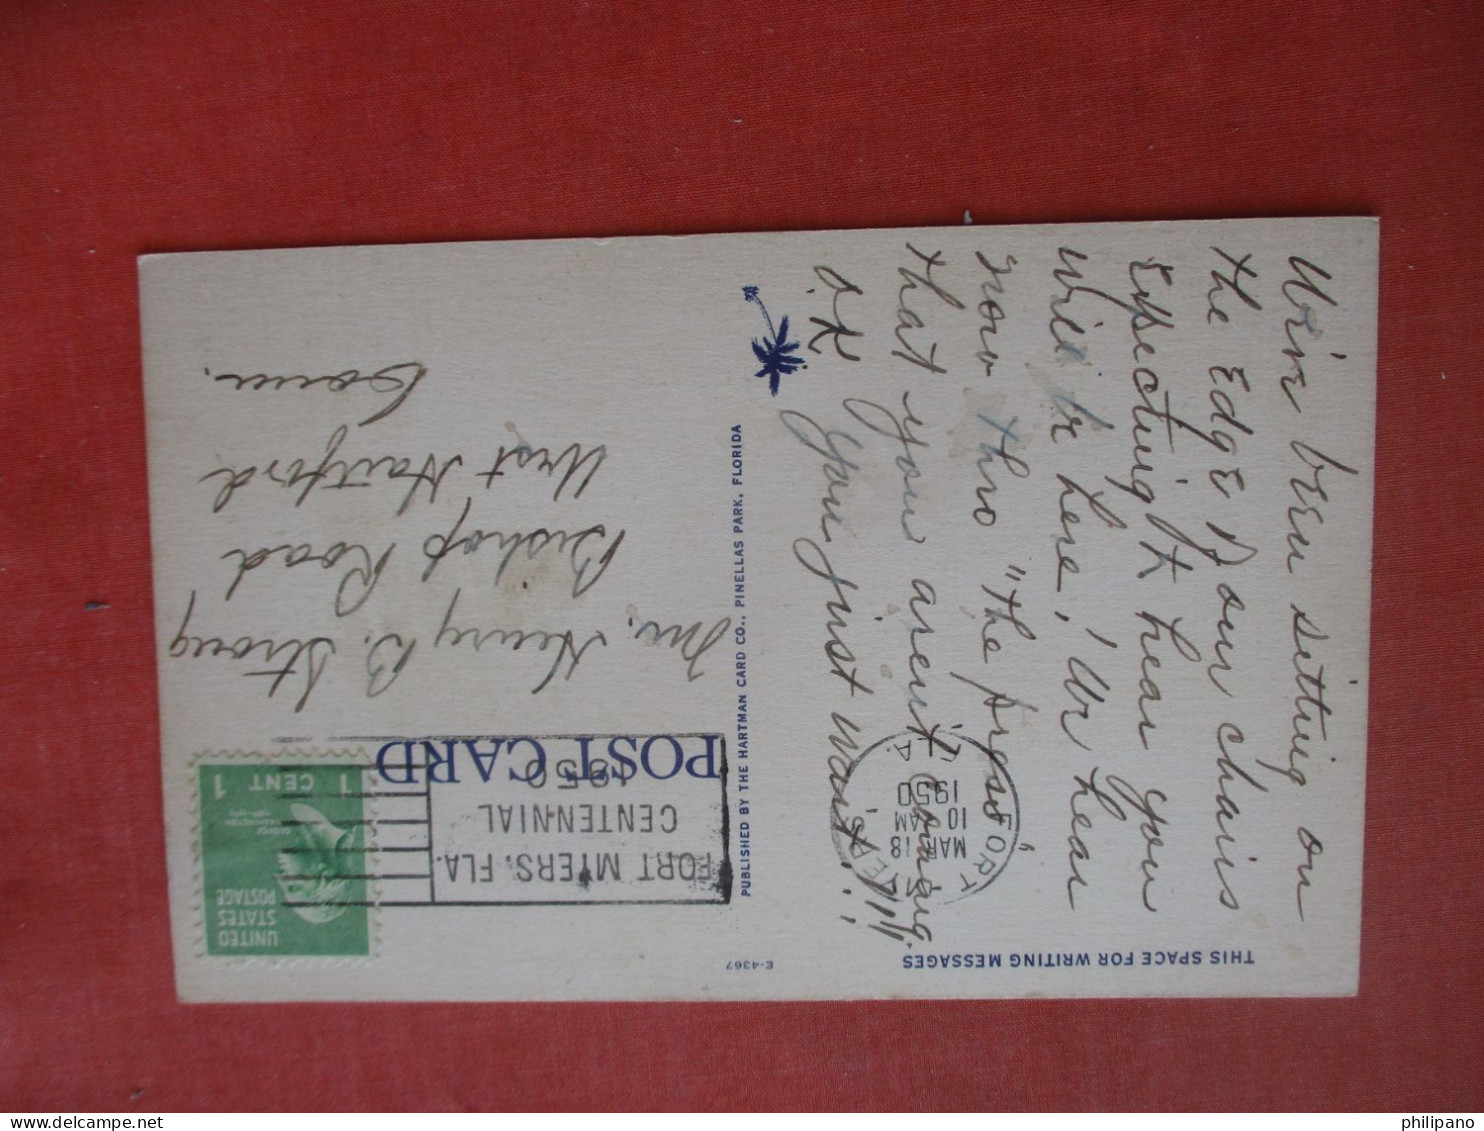 THIS SPACE FOR WRITING MESSAGES
We've been sitting on
the Edge of our chairs
Expecting t hear you
will be here, We hear
now thro "the press"
that you aren't coming.
O.K. you just wait!!!!!
E-4367
PUBLISHED BY THE HARTMAN CARD CO., PINELLAS PARK, FLORIDA
FORT MYERS
MAR 18
10 AM
1950
FLA.
FORT MYERS, FLA.
CENTENNIAL
1950
UNITED
STATES
POSTAGE
GEORGE
WASHINGTON
1 CENT 1
POST CARD
Mr. Henry B. Strong
Bishop Road
West Hartford
Conn.
philipano